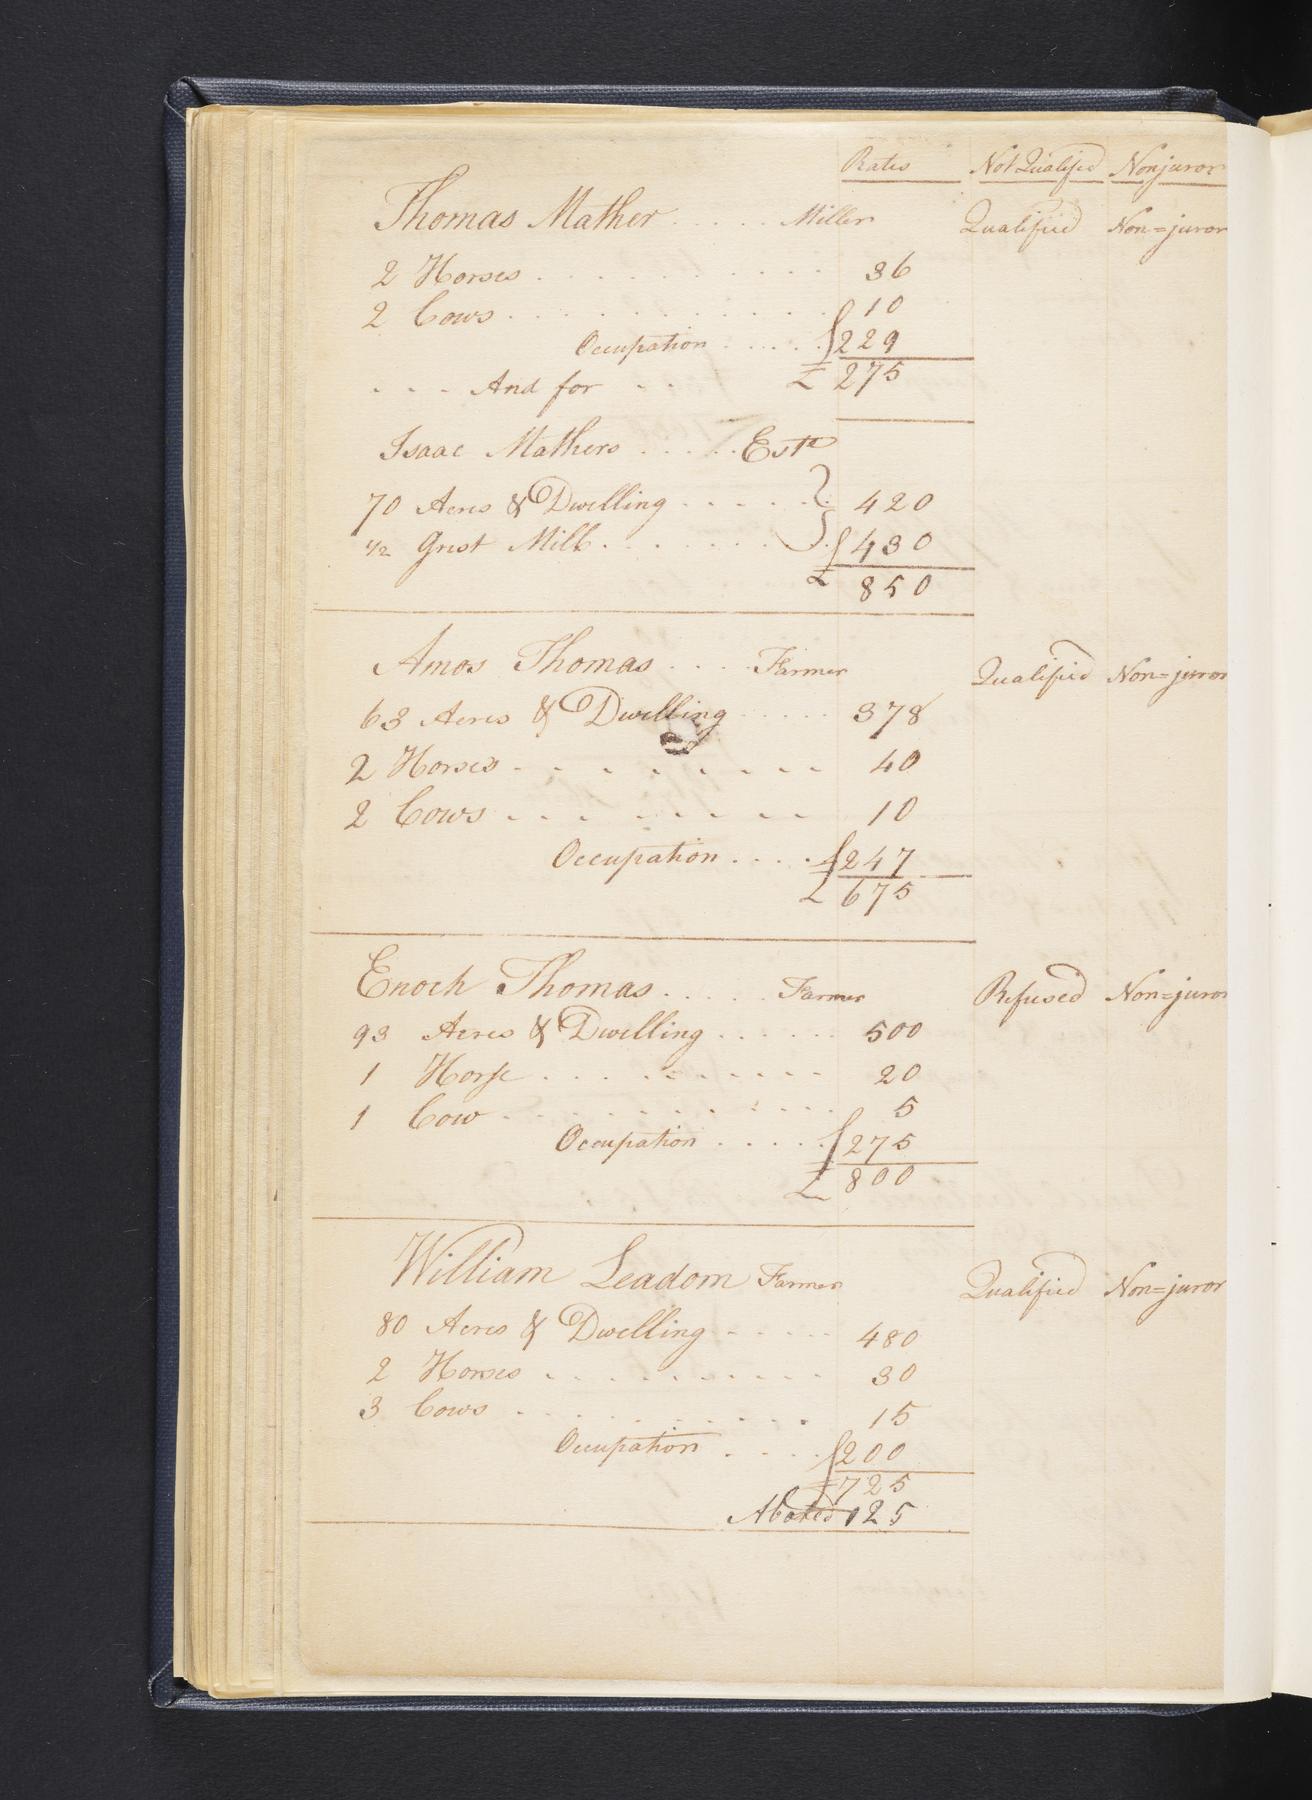 Rates Not Qualified Nonjuror
Thomas Mather . . . . Miller Qualified Non=juror
2 Horses . . . . . . . . . . . 36
2 Cows . . . . . . . . . . . 10
Occupation . . . . . 229
- - - And for - - £ 275
Isaac Mathers . . . . . Este
70 Acres & Dwelling . . . . . . 420
1/2 Grist Mill . . . . . . . . 430
£ 850
Amos Thomas . . . . Farmer Qualified Non=juror
63 Acres & Dwelling . . . . . 378
2 Horses - - - - - - - - - 40
2 Cows - - - - - - - - 10
Occupation . . . . 247
£ 675
Enoch Thomas . . . . . Farmer Refused Non=juror
93 Acres & Dwelling . . . . . . 500
1 Horse . . . . . . . . . . 20
1 Cow . . . . . . . . . . 5
Occupation . . . . . 275
£ 800
William Leadom Farmer Qualified Non=juror
80 Acres & Dwelling - - - - - 480
2 Horses . . . . . . . . . . 30
3 Cows . . . . . . . . . . 15
Occupation . . . . 200
£ 725
Abated 125